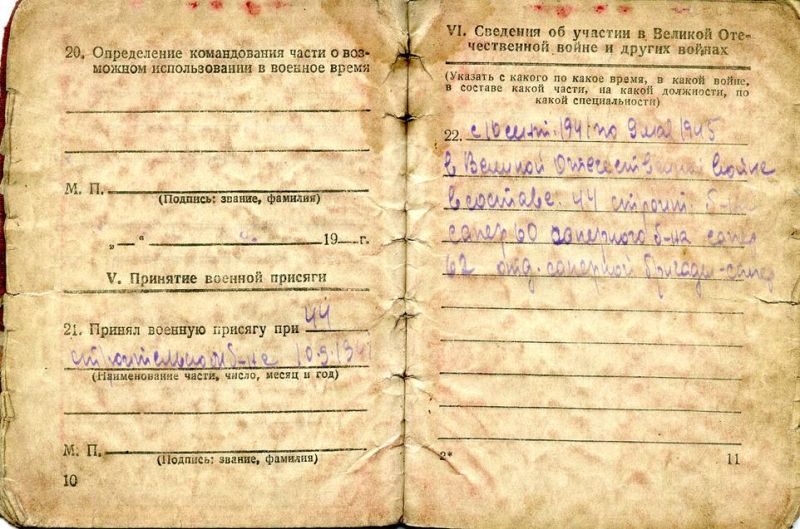 20. Определение командования части о воз-
можном использовании в военное время
М. П.
(Подпись: звание, фамилия)
„ — “ 19 — г.
V. Принятие военной присяги
21. Принял военную присягу при 44
строительном б-не 10.9.1941
(Наименование части, число, месяц и год)
М. П.
(Подпись: звание, фамилия)
10
VI. Сведения об участии в Великой Оте-
чественной войне и других войнах
(Указать с какого по какое время, в какой войне,
в составе какой части, на какой должности, по
какой специальности)
22. с 10 сент. 1941 по 9 мая 1945
в Великой Отечественной войне
в составе: 44 строит. б-на
сапер 60 саперного б-на сапер
62 отд. саперной бригады-сапер
2*
11